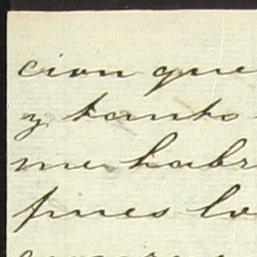 cion que
y tanto
me habr
pues lo